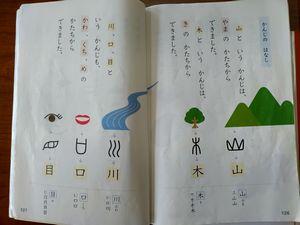 かんじの はなし
山と いう かんじは、
やまの かたちから
できました。
木と いう かんじは、
きの かたちから
できました。
山
山
木
木
126
川、口、目と
いう かんじも、
かわ、くち、めの
かたちから
できました。
川
川
口
口
目
目
127